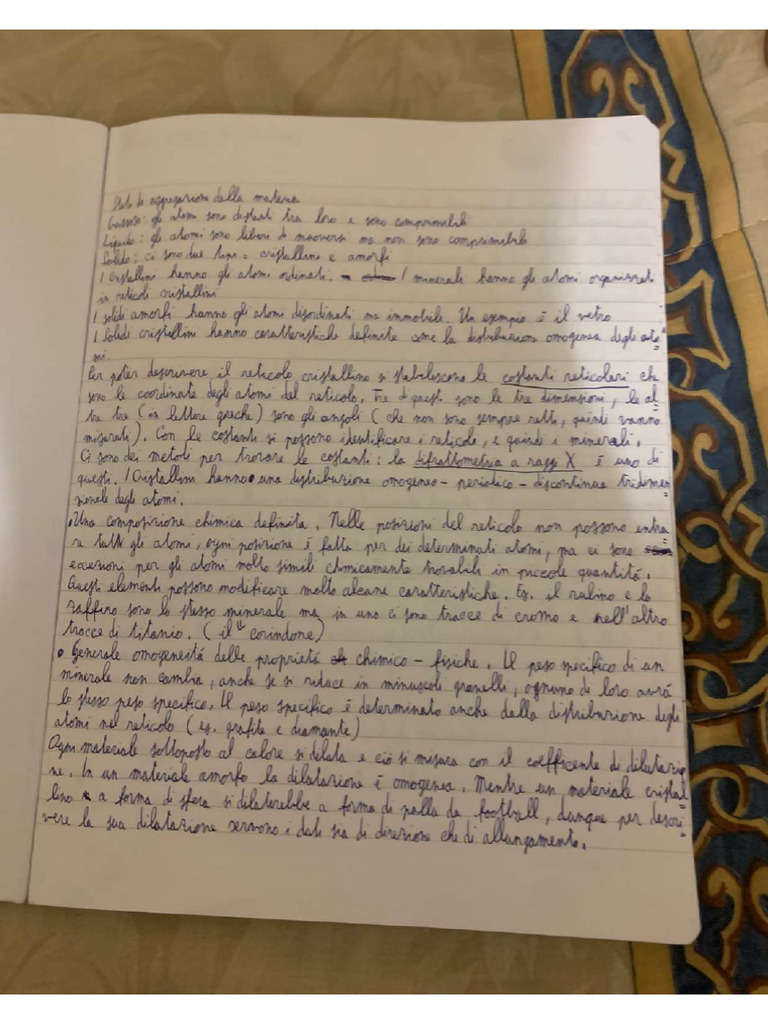 Stato di aggregazione della materia
Gassoso: gli atomi sono distanti tra loro e sono comprimibili
Liquido: gli atomi sono liberi di muoversi ma non sono comprimibili
Solido: ci sono due tipi = cristallini e amorfi
I cristallini hanno gli atomi ordinati. I minerali hanno gli atomi organizzati
in reticoli cristallini
I solidi amorfi hanno gli atomi disordinati ma immobili. Un esempio è il vetro
I solidi cristallini hanno caratteristiche definite come la distribuzione omogenea degli ato=
mi.
Per poter descrivere il reticolo cristallino si stabiliscono le costanti reticolari che
sono le coordinate degli atomi del reticolo. Tre di questi sono le tre dimensioni, le al=
tre tre (in lettere greche) sono gli angoli (che non sono sempre retti, quindi vanno
misurati). Con le costanti si possono identificare i reticoli, e quindi i minerali.
Ci sono dei metodi per trovare le costanti: la difrattometria a raggi X è uno di
questi. I Cristallini hanno una distribuzione omogeneo - periodico - discontinua tridimen=
sionale degli atomi.
• Una composizione chimica definita. Nelle posizioni del reticolo non possono entra=
re tutti gli atomi, ogni posizione è fatta per dei determinati atomi, ma ci sono
eccezioni per gli atomi molto simili chimicamente trovabili in piccole quantità.
Questi elementi possono modificare molto alcune caratteristiche. Es. il rubino e lo
zaffiro sono lo stesso minerale ma in uno ci sono tracce di cromo e nell'altro
tracce di titanio. (il corindone)
• Generale omogeneità delle proprietà chimico - fisiche. Il peso specifico di un
minerale non cambia, anche se si riduce in minuscoli granelli, ognuno di loro avrà
lo stesso peso specifico. Il peso specifico è determinato anche dalla distribuzione degli
atomi nel reticolo (es. grafite e diamante)
Ogni materiale sottoposto al calore si dilata e ciò si misura con il coefficente di dilatazio=
ne. In un materiale amorfo la dilatazione è omogenea. Mentre un materiale cristal=
lino a forma di sfera si dilaterebbe a forma di palla da football, dunque per descri=
vere la sua dilatazione servono i dati sia di direzione che di allungamento.